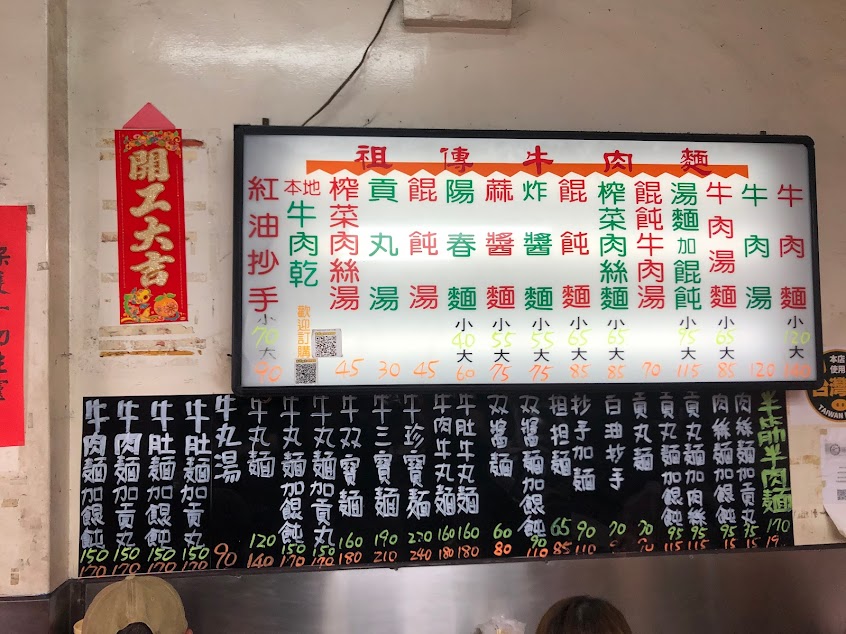 開工大吉
祖傳牛肉麵
牛肉麵 小 120 大
牛肉湯 120
牛肉湯麵 小 65 大 85
湯麵加餛飩 小 75 大 115
餛飩牛肉湯 70
榨菜肉絲麵 小 65 大 85
餛飩麵 小 65 大 85
炸醬麵 小 55 大 75
蔴醬麵 小 55 大 75
陽春麵 小 40 大 60
餛飩湯 45
貢丸湯 30
榨菜肉絲湯 45
本地牛肉乾
歡迎訂購
紅油抄手 小 70 大 90
半筋半肉麵 170
肉絲麵加貢丸 95
肉絲麵加餛飩 95 115
貢丸麵加肉絲 95 115
貢丸麵加餛飩 95 115
貢丸麵 70
白油抄手 70
抄手加麵 90 110
担担麵 65 85
双醬麵加餛飩 90 110
双醬麵 60 80
牛肚牛丸麵 160 180
牛肉牛丸麵 160 180
牛珍寶麵 220 240
牛三寶麵 190 210
牛双寶麵 160 180
牛丸麵加貢丸 150 170
牛丸麵加餛飩 150 170
牛丸麵 120 140
牛丸湯 90
牛肚麵加貢丸 150 170
牛肚麵加餛飩 150 170
牛肉麵加貢丸 150 170
牛肉麵加餛飩 150 170
本店
使用
台灣
TAIWAN